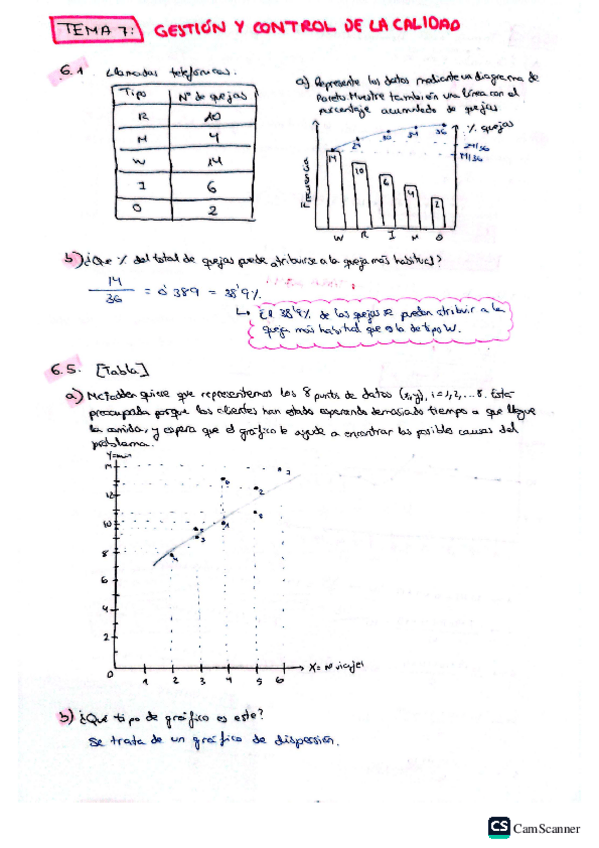 TEMA 7: GESTIÓN Y CONTROL DE LA CALIDAD
6.1 Llamadas telefónicas.
Tipo Nº de quejas
R 10
M 4
W 14
I 6
O 2
a) Represente los datos mediante un diagrama de
Pareto. Muestre también una línea con el
porcentaje acumulado de quejas
Frecuencia
% quejas
24 30 34 36
24/36
14/36
14 10 6 4 2
W R I M O
b) ¿Que % del total de quejas puede atribuirse a la queja más habitual?
14/36 = 0'389 = 38'9%.
↳ El 38'9% de las quejas se pueden atribuir a la
queja más habitual que es la de tipo W.
6.5. [Tabla]
a) McFadden quiere que representemos los 8 puntos de datos (x,y), i=1,2,...8. Está
preocupada porque los clientes han estado esperando demasiado tiempo a que llegue
la comida, y espera que el gráfico le ayude a encontrar las posibles causas del
problema.
Y=min
14
12
10
8
6
4
2
0
1 2 3 4 5 6
X= Nº viajes
b) ¿Qué tipo de gráfico es este?
Se trata de un gráfico de dispersión.
CS CamScanner